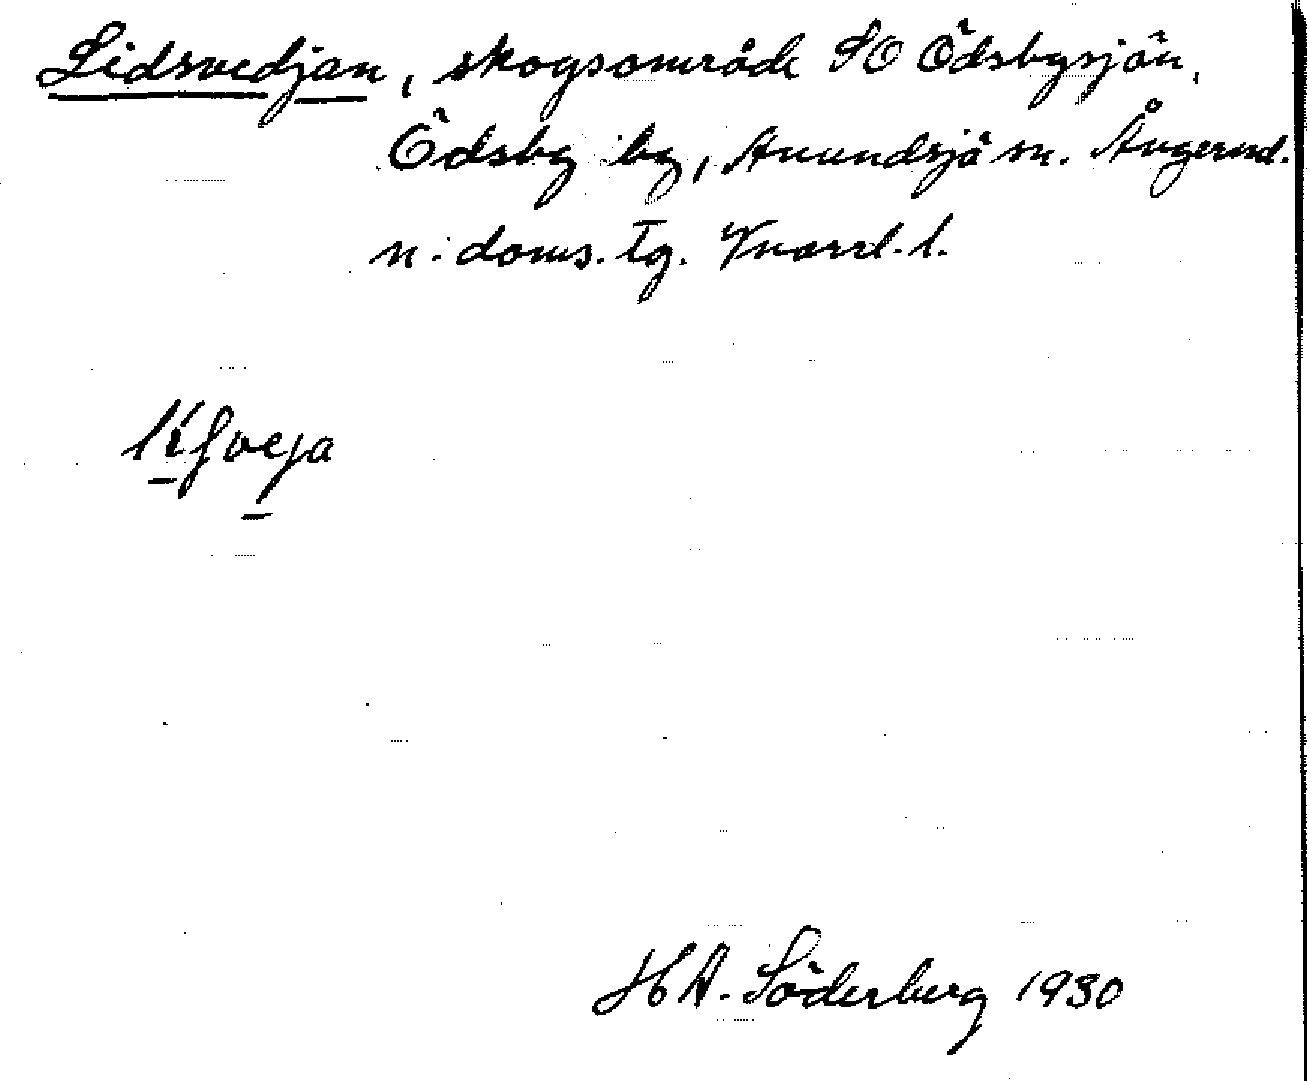 Lidsvedjan, skogsområde SO Ödsbysjön,
Ödsby by, Anundsjö sn. Ångermd.
n: doms. tg. Vnorrl. l.
H A. Söderberg 1930